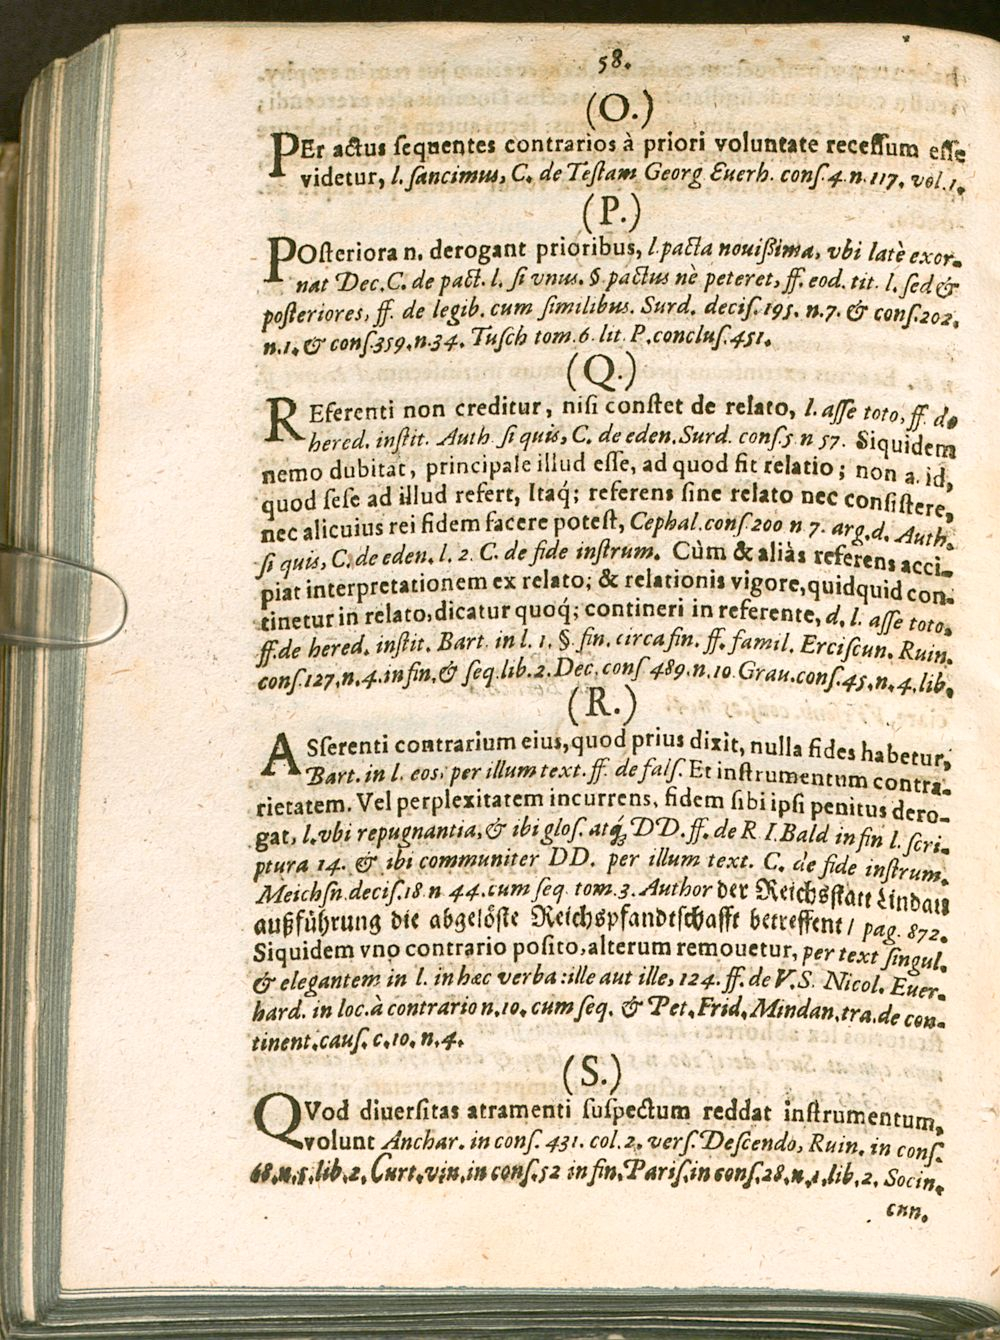 58.
(O.)
PEr actus ſequentes contrarios à priori voluntate receſſum eſſe
videtur, l. ſancimus, C. de Teſtam Georg Euerh. conſ. 4. n. 117. vol. 1.
(P.)
POſteriora n. derogant prioribus, l. pacta nouißima, vbi latè exor-
nat Dec. C. de pact. l. ſi vnus. §. pactus nè peteret, ff. eod. tit. l. ſed &
poſteriores, ff. de legib. cum ſimilibus. Surd. deciſ. 195. n. 7. & conſ. 202.
n. 1. & conſ 359. n. 34. Tuſch tom. 6. lit P. concluſ. 451.
(Q.)
REferenti non creditur, niſi conſtet de relato, l. aſſe toto, ff. de
hered. inſtit. Auth ſi quis, C. de eden. Surd. conſ. 5 n 57. Siquidem
nemo dubitat, principale illud eſſe, ad quod fit relatio; non a. id,
quod ſeſe ad illud refert, Itaq́; referens ſine relato nec conſiſtere,
nec alicuius rei fidem facere poteſt, Cephal. conſ 200 n 7. arg. d. Auth.
ſi quis, C. de eden. l. 2. C. de fide inſtrum. Cùm & aliàs referens acci-
piat interpretationem ex relato; & relationis vigore, quidquid con-
tinetur in relato, dicatur quoq́; contineri in referente, d. l. aſſe toto,
ff. de hered. inſtit. Bart. in l. 1. §. fin. circa fin. ff. famil. Erciſcun. Ruin.
conſ. 127. n. 4. in fin. & ſeq. lib. 2. Dec. conſ 489. n. 10 Grau. conſ. 45. n. 4. lib.
(R.)
ASſerenti contrarium eius, quod prius dixit, nulla fides habetur,
Bart. in l. eos, per illum text. ff. de falſ. Et inſtrumentum contra-
rietatem. Vel perplexitatem incurrens, fidem ſibi ipſi penitus dero-
gat, l. vbi repugnantia, & ibi gloſ. atq́; DD. ff. de R I. Bald in fin l. ſcri-
ptura 14. & ibi communiter DD. per illum text. C. de fide inſtrum.
Meichſn deciſ. 18 n 44. cum ſeq tom. 3. Author der Reichsſtatt Lindau
außführung die abgelöſte Reichspfandtſchafft betreffent / pag. 872.
Siquidem vno contrario poſito, alterum remouetur, per text ſingul.
& elegantem in l. in hæc verba: ille aut ille, 124. ff. de V. S. Nicol. Euer-
hard. in loc. à contrario n. 10. cum ſeq. & Pet. Frid. Mindan. tra. de con-
tinent. cauſ. c. 10. n. 4.
(S.)
QVod diuerſitas atramenti ſuſpectum reddat inſtrumentum,
volunt Anchar. in conſ. 431. col. 2. verſ. Deſcendo, Ruin. in conſ.
68. n. 5. lib. 2. Curt. vin. in conſ. 52 in fin. Pariſ. in conſ. 28. n. 1. lib. 2. Socin.
cnn.